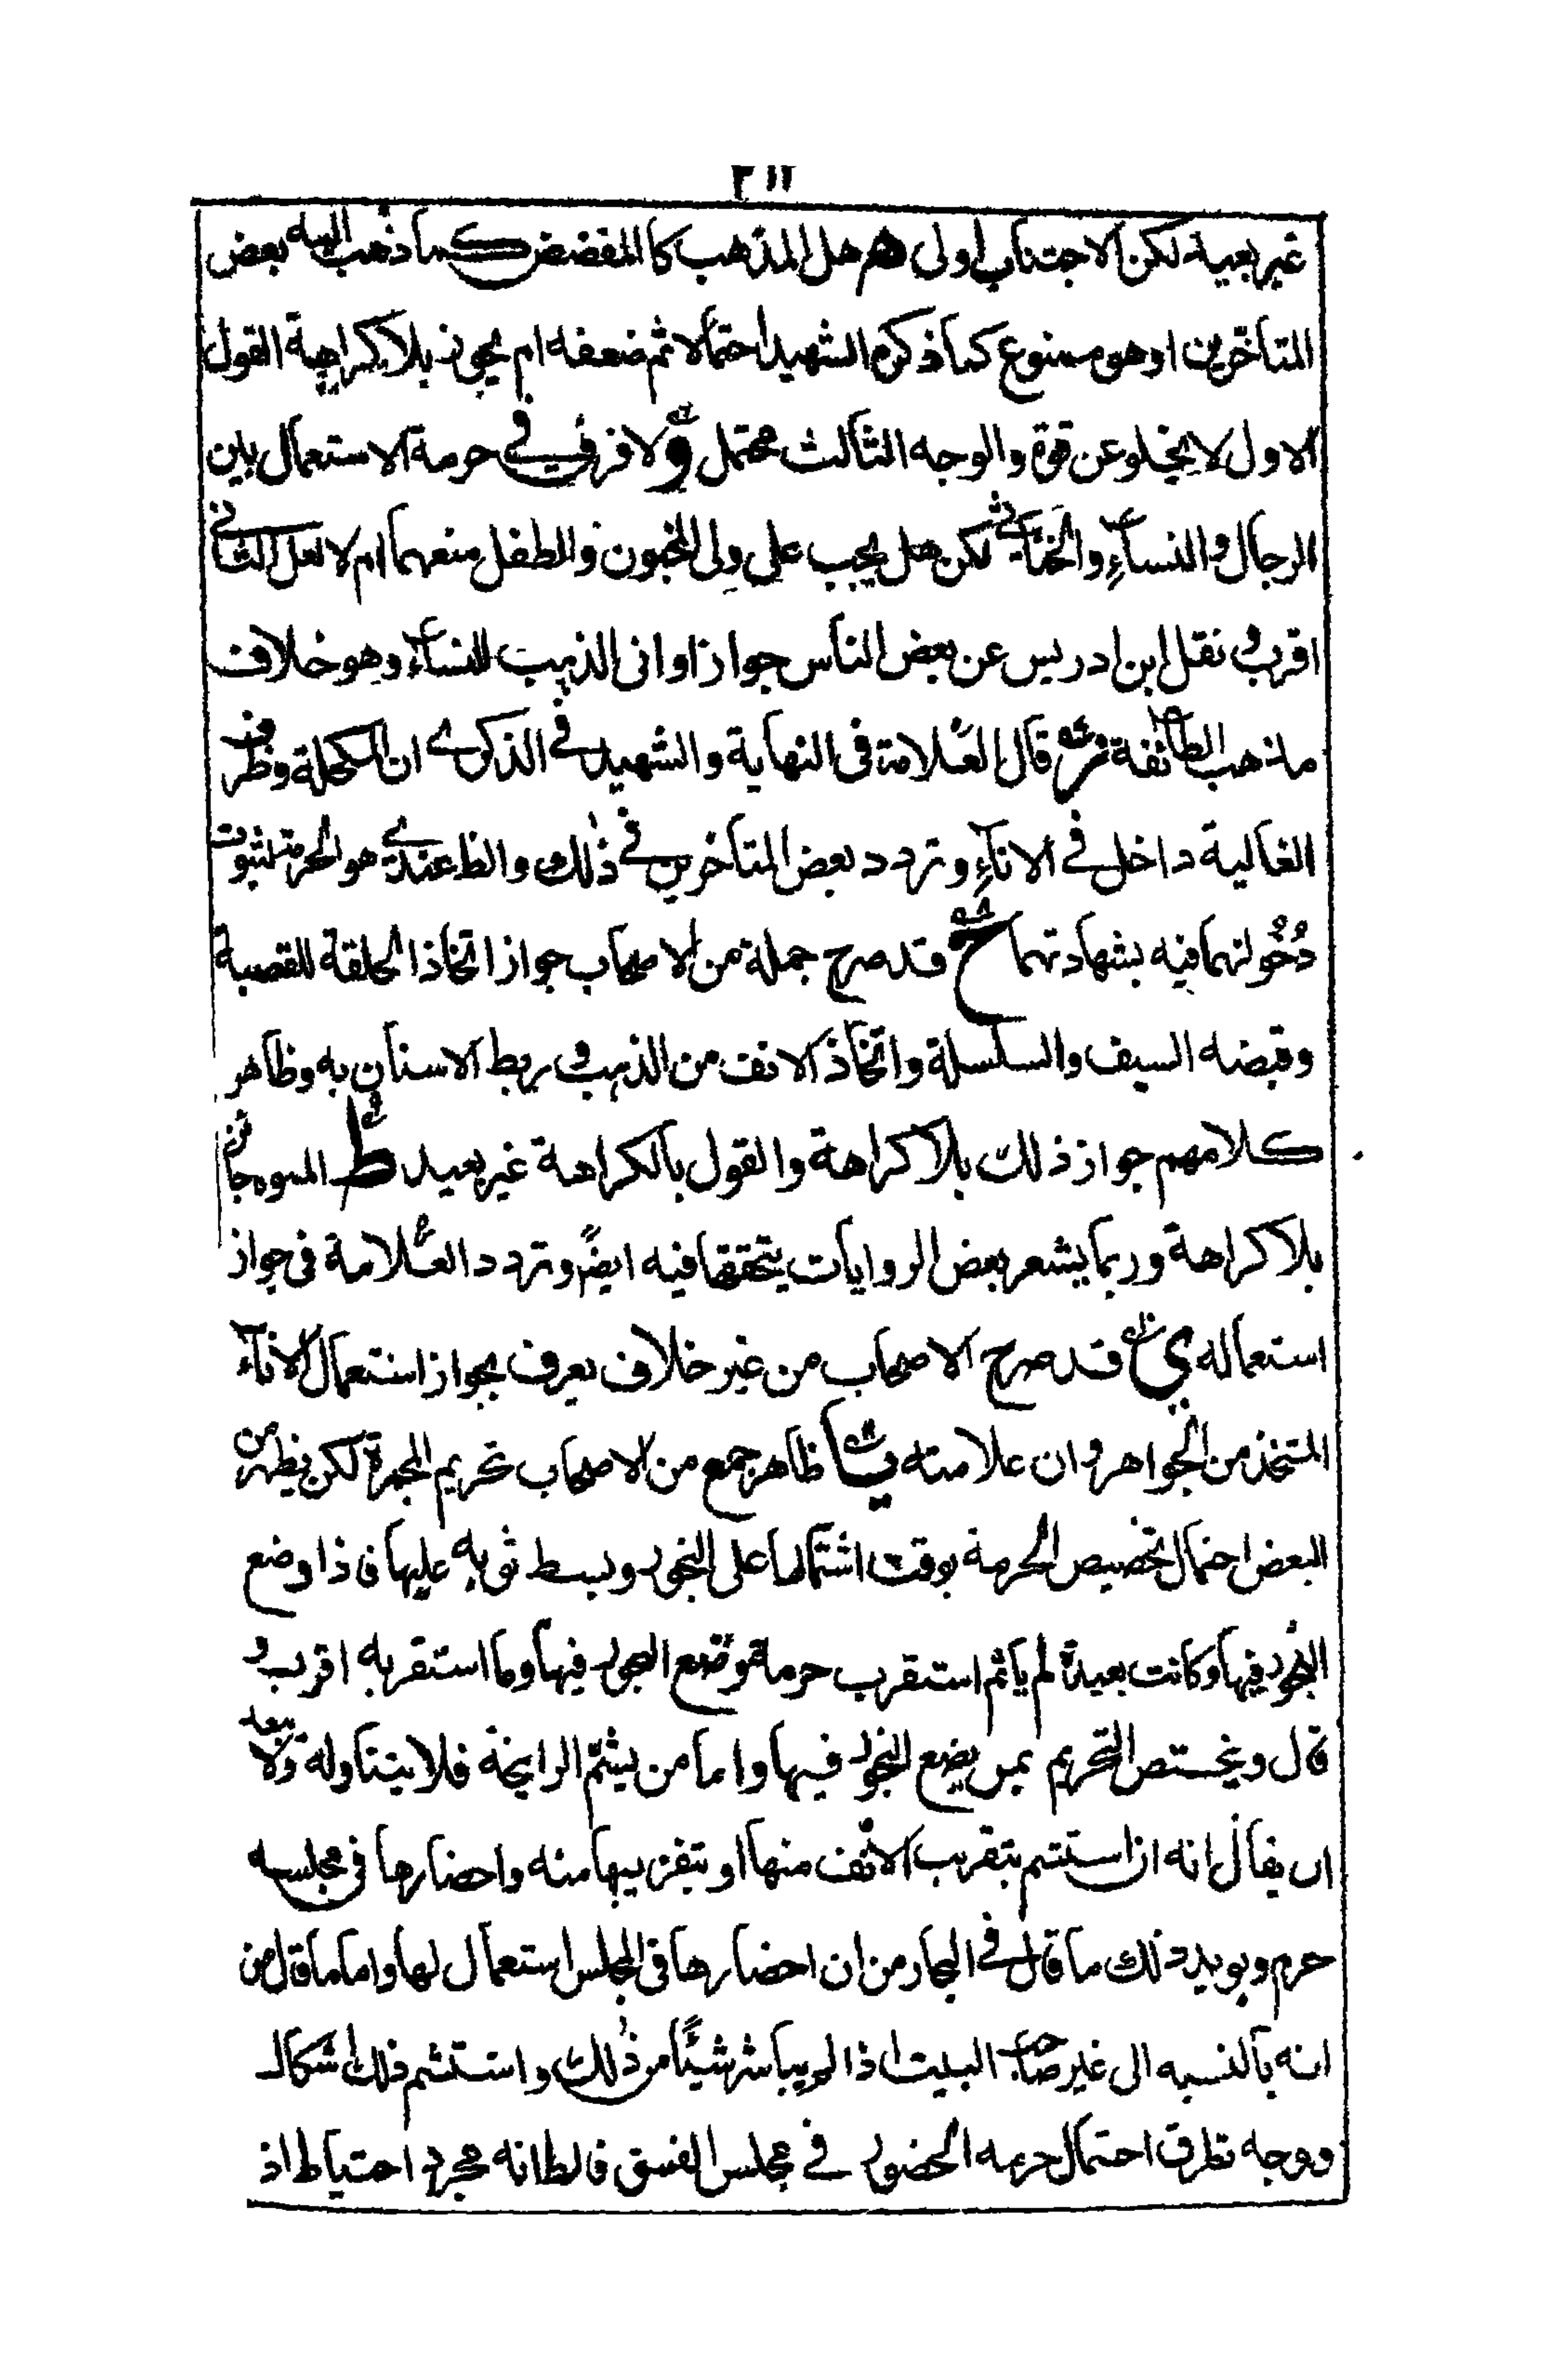 ٢١١
غير بعيد لكن الاجتناب اولى هـ هل المذهب كالمفضض كما ذهب اليه بعض
المتاخرين او هو ممنوع كما ذكره الشهيد احتمالا ثم ضعفه ام يجوز بلا كراهية القول
الاول لا يخلو عن قوة والوجه الثالث محتمل و لا فرق في حرمة الاستعمال بين
الرجال والنساء والخناثى لكن هل يجب على ولى المجنون والطفل منعهما ام لا لعل الثانى
اقرب و نقل ابن ادريس عن بعض الناس جواز اوانى الذهب للنساء وهو خلاف
مذهب الطائفة ز قال العلامة فى النهاية والشهيد في الذكرى ان المكحلة وظرف
الغالية داخل في الاناء و تردد بعض المتاخرين في ذلك والظ عندى هو الحرمة لثبوت
دخولهما فيه بشهادتهما ح قد صرح جملة من الاصحاب جواز اتخاذ الحلقة للقصعة
وقبضه السيف والسلسلة واتخاذ الانف من الذهب و ربط الاسنان به وظاهر
كلامهم جواز ذلك بلا كراهة والقول بالكراهة غير بعيد ط المموه جائز
بلا كراهة وربما يشعر بعض الروايات بتحققها فيه ايضً وتردد العلامة فى جواز
استعماله ى قد صرح الاصحاب من غير خلاف يعرف بجواز استعمال الاناء
المتخذ من الجواهر وان علا ثمنه يا ظاهر جمع من الاصحاب تحريم المجمرة لكن يظهر من
البعض احتمال تخصيص الحرمة بوقت اشتمالها على البخور وبسط ثوبه عليها فاذا وضع
البخور فيها وكانت بعيدة لم ياثم استقرب حرمة وضع البخور فيها وما استقربه اقرب و
قال ويختص التحريم بمن يضع البخور فيها واما من يشم الرايحة فلا يتناوله ولا يبعد
ان يقال انه ان استشم بتقريب الانف منها او بتقريبها منه واحضارها فى مجلسه
حرم ويويد ذلك ما قال في البحار من ان احضارها فى المجلس استعمال لها واما ما قال من
انه بالنسبه الى غير صاحب البيت اذا لم يباشر شيئًا من ذلك واستشم فلك اشكال
ووجه تطرق احتمال حرمه الحضور في مجلس الفسق فالظ انه مجرد احتياط اذ